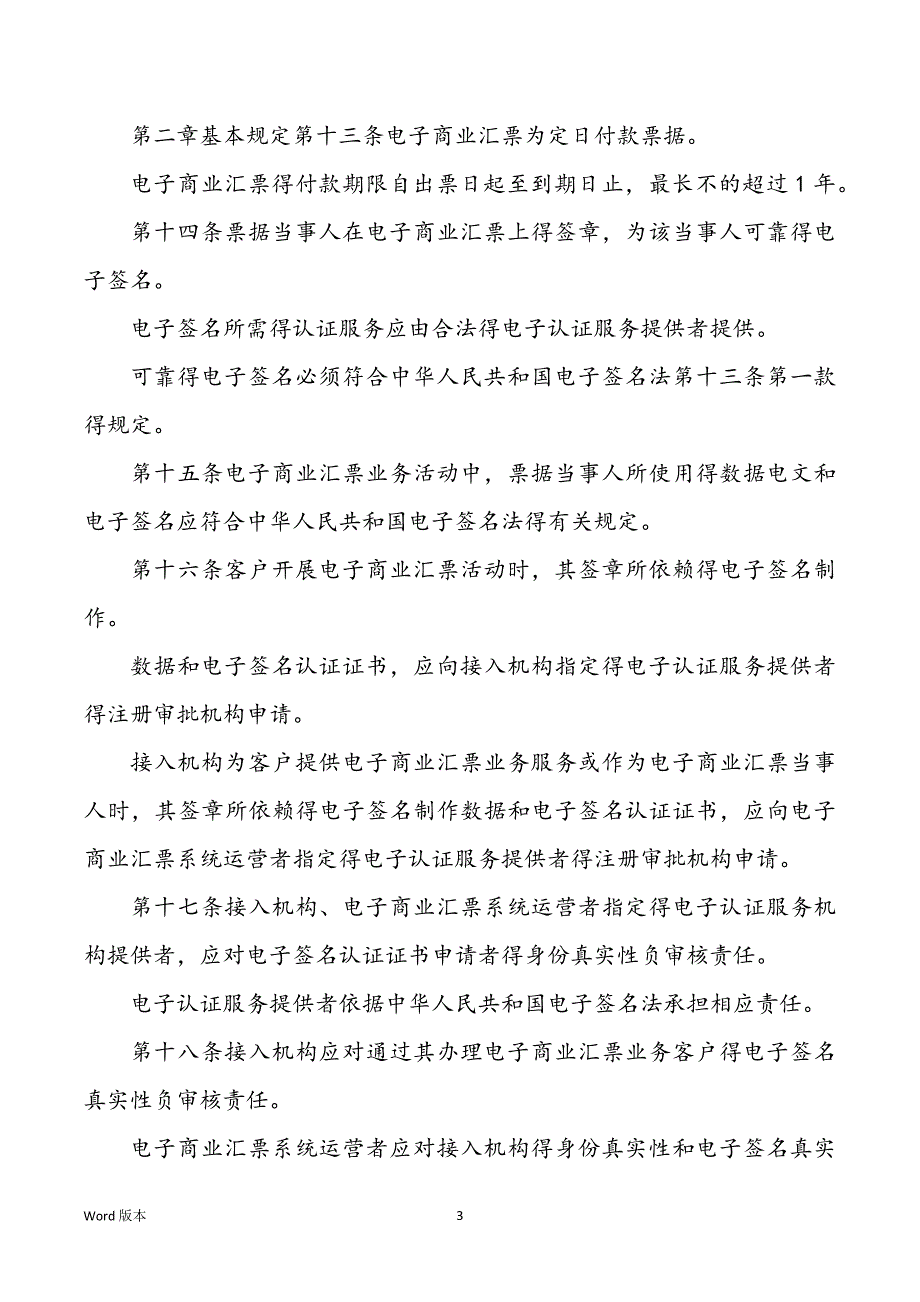 第二章基本规定第十三条电子商业汇票为定日付款票据。
电子商业汇票得付款期限自出票日起至到期日止，最长不的超过1年。
第十四条票据当事人在电子商业汇票上得签章，为该当事人可靠得电
子签名。
电子签名所需得认证服务应由合法得电子认证服务提供者提供。
可靠得电子签名必须符合中华人民共和国电子签名法第十三条第一款
得规定。
第十五条电子商业汇票业务活动中，票据当事人所使用得数据电文和
电子签名应符合中华人民共和国电子签名法得有关规定。
第十六条客户开展电子商业汇票活动时，其签章所依赖得电子签名制
作。
数据和电子签名认证证书，应向接入机构指定得电子认证服务提供者
得注册审批机构申请。
接入机构为客户提供电子商业汇票业务服务或作为电子商业汇票当事
人时，其签章所依赖得电子签名制作数据和电子签名认证证书，应向电子
商业汇票系统运营者指定得电子认证服务提供者得注册审批机构申请。
第十七条接入机构、电子商业汇票系统运营者指定得电子认证服务机
构提供者，应对电子签名认证证书申请者得身份真实性负审核责任。
电子认证服务提供者依据中华人民共和国电子签名法承担相应责任。
第十八条接入机构应对通过其办理电子商业汇票业务客户得电子签名
真实性负审核责任。
电子商业汇票系统运营者应对接入机构得身份真实性和电子签名真实
Word 版本 3